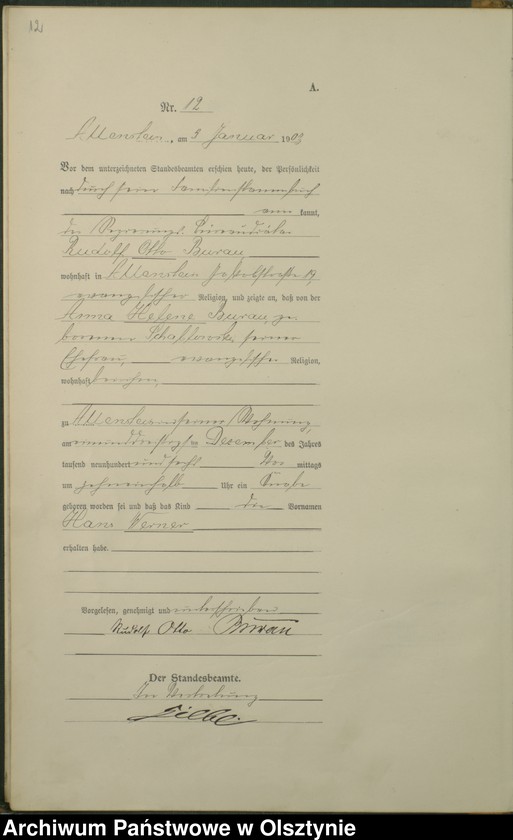 12
A.
Nr. 12
Allenstein, am 3 Januar 190
Vor dem unterzeichneten Standesbeamten erschien heute, der Persönlichkeit
nach durch sein Familienstammbuch
aner kannt,
der Regierungs
Rudolf Otto Burau
wohnhaft in Allenstein 19,
evangelischer Religion, und zeigte an, daß von der
Anna Helene Burau, ge-
borenen seiner
Ehefrau, evangelischer Religion,
wohnhaft bei ihm,
zu Allenstein in seiner Wohnung,
am einunddreißigsten Dezember des Jahres
tausend neunhundert und Vor mittags
um zehneinhalb Uhr ein Knabe
geboren worden sei und daß das Kind die Vornamen
Hans Werner
erhalten habe.
Vorgelesen, genehmigt und unterschrieben
Rudolf Otto Burau
Der Standesbeamte.
In Vertretung
Archiwum Państwowe w Olsztynie